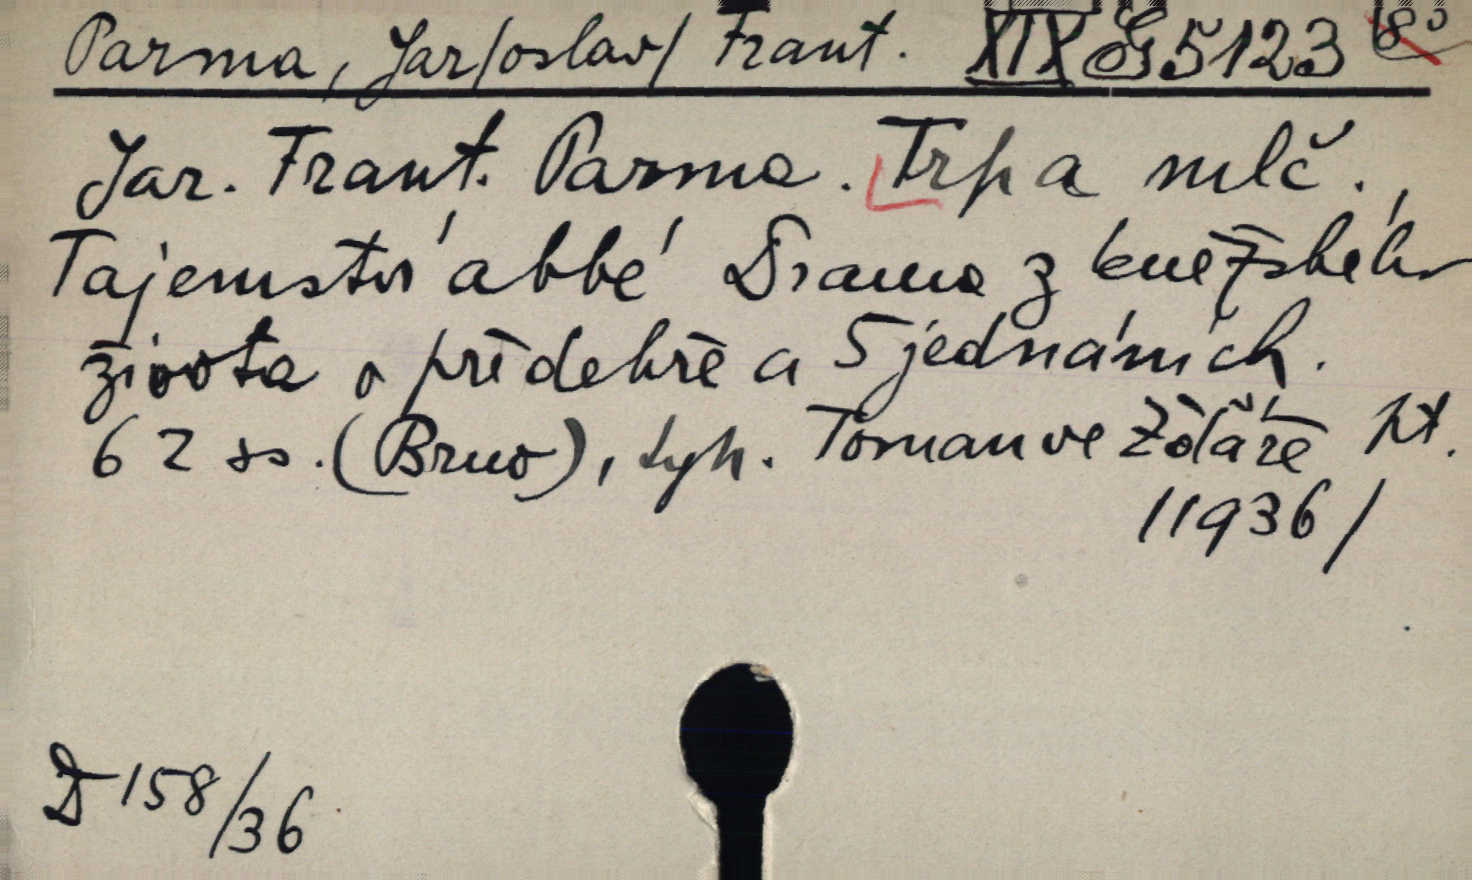 Parma, Jar/oslav/ Frant. XIX G 5123 18°
Jar. Frant. Parma. Trp a mlč.,
Tajemství abbé Drama z kněžského
života o předehře a 5 jednáních.
62 ss. (Brno), typ. Toman ve Žďáře
/1936/
D 158/36